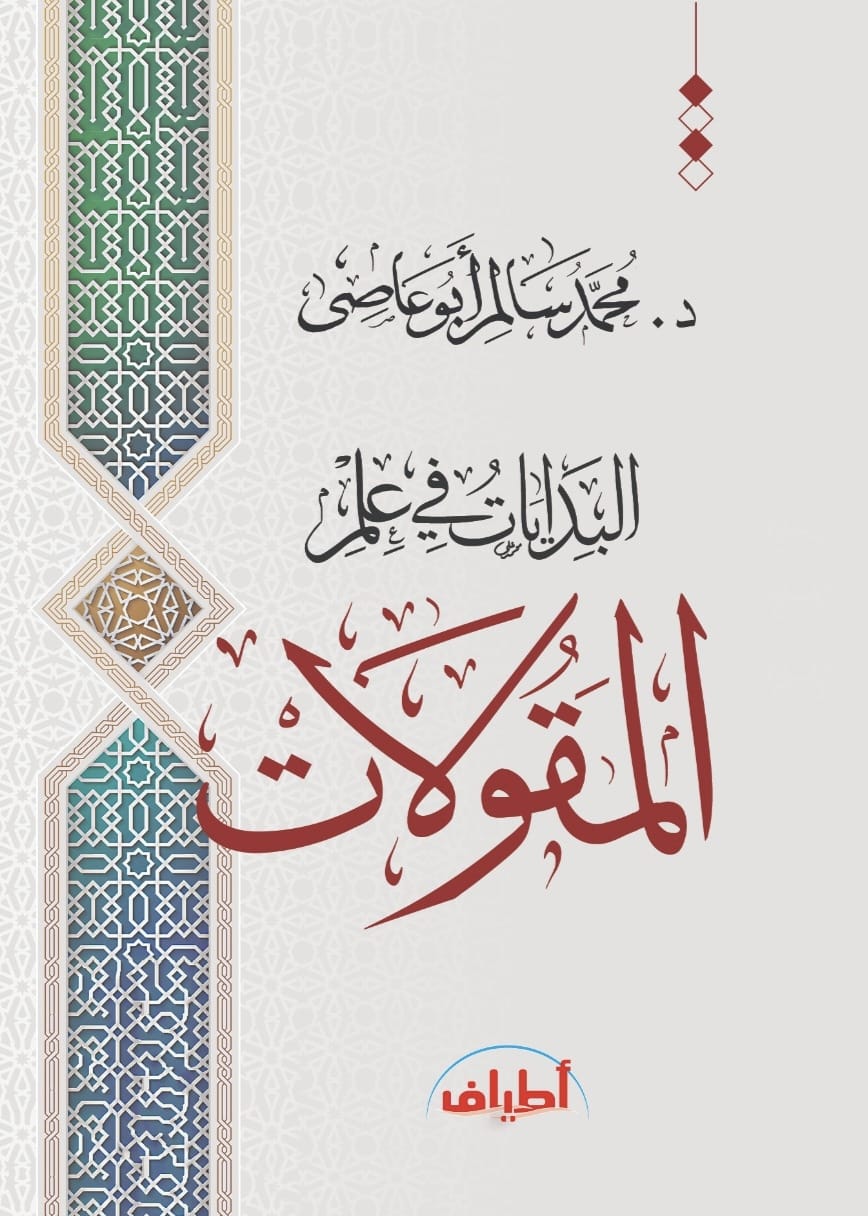 د. محمد سالم أبو عاصي
البدايات في علم
المقولات
أطياف